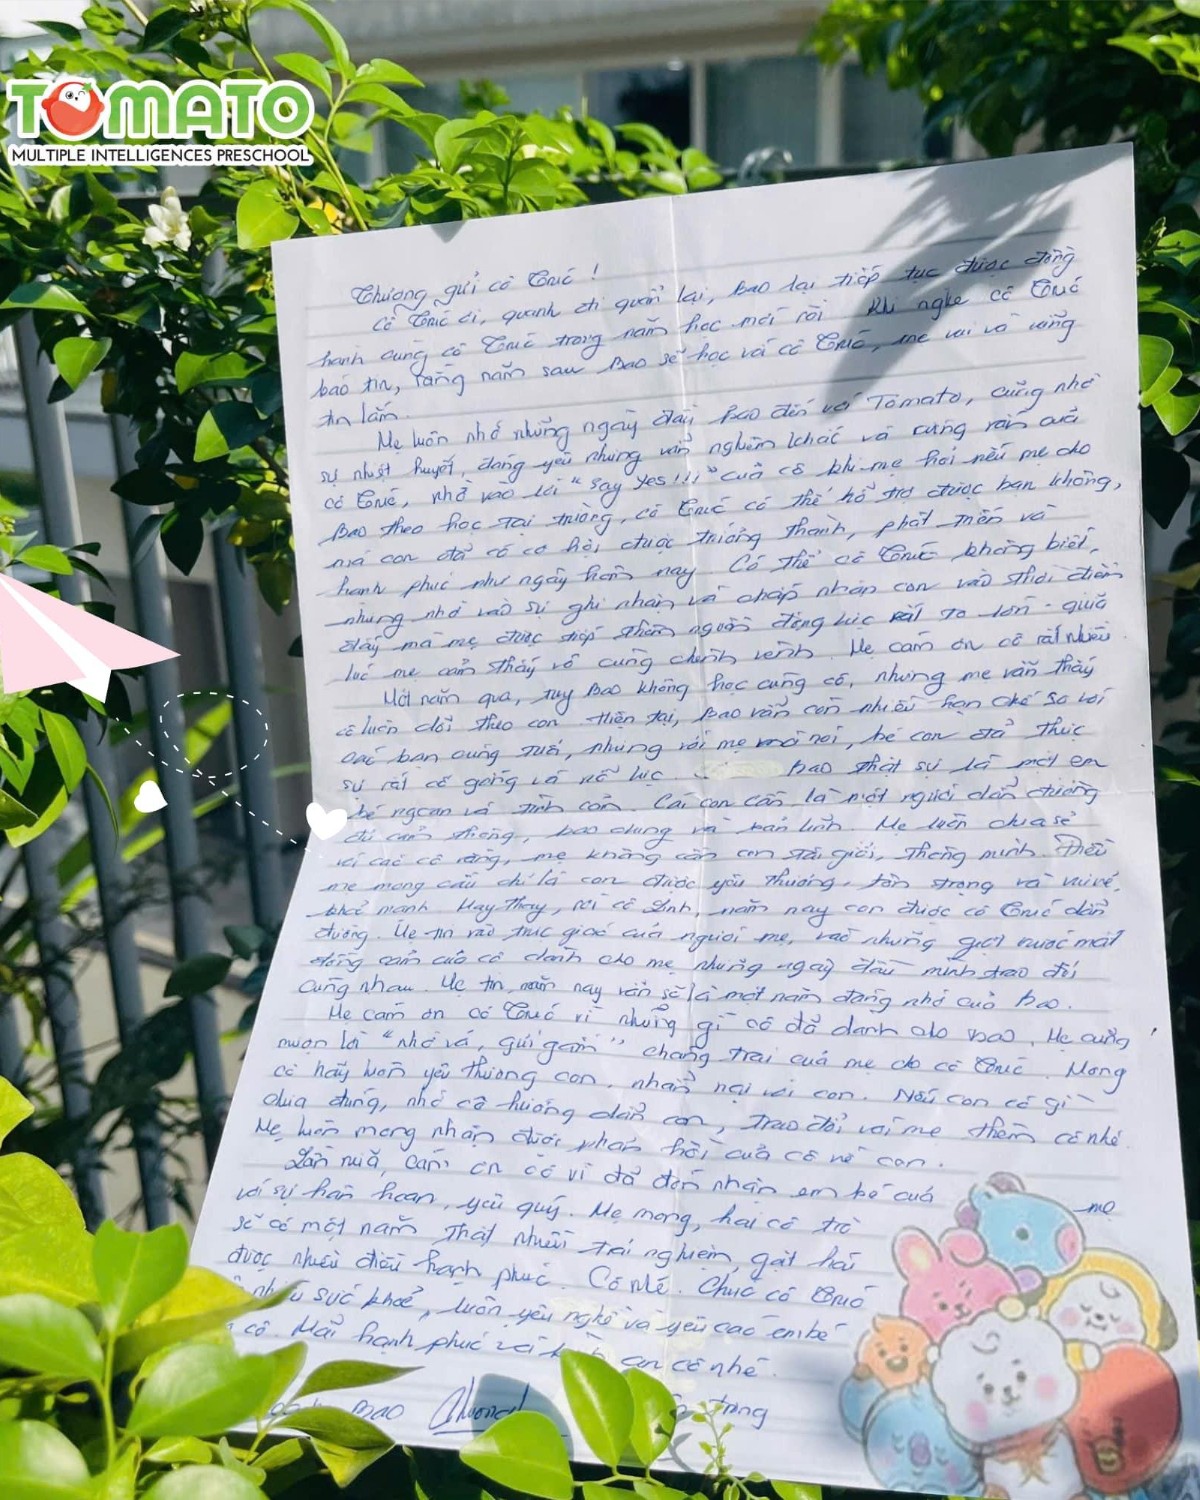 TOMATO
MULTIPLE INTELLIGENCES PRESCHOOL
Thương gửi cô Trúc!
Cô Trúc ơi, quanh đi quẩn lại, Bao lại tiếp tục được đồng
hành cùng cô Trúc trong năm học mới rồi. Khi nghe cô Trúc
báo tin, rằng năm sau Bao sẽ học với cô Trúc, mẹ vui và vững
tin lắm.
Mẹ luôn nhớ những ngày đầu Bao đến với Tomato, cũng nhớ
sự nhiệt huyết, đáng yêu nhưng vẫn nghiêm khắc và cứng rắn của
cô Trúc, nhờ vào lời "Say yes!!!" của cô khi mẹ hỏi nếu mẹ cho
Bao theo học tại trường, cô Trúc có thể hỗ trợ được bạn không,
mà con đã có cơ hội được trưởng thành, phát triển và
hạnh phúc như ngày hôm nay. Có thể cô Trúc không biết,
nhưng nhờ vào sự ghi nhận và chấp nhận con vào thời điểm
đấy mà mẹ được tiếp thêm nguồn động lực rất to lớn - giữa
lúc mẹ cảm thấy vô cùng chênh vênh. Mẹ cảm ơn cô rất nhiều.
Một năm qua, tuy Bao không học cùng cô, nhưng mẹ vẫn thấy
cô luôn dõi theo con. Hiện tại, Bao vẫn còn nhiều hạn chế so với
các bạn cùng tuổi, nhưng với mẹ mà nói, bé con đã thực
sự rất cố gắng và nỗ lực. Bao thật sự là một em
bé ngoan và tình cảm. Cái con cần là một người dẫn đường
đủ cảm thông, bao dung và bản lĩnh. Mẹ luôn chia sẻ
với các cô rằng, mẹ không cần con tài giỏi, thông minh. Điều
mẹ mong cầu chỉ là con được yêu thương, tôn trọng và vui vẻ,
khoẻ mạnh. May thay, với cô Linh, năm nay con được cô Trúc dẫn
đường. Mẹ tin vào trực giác của người mẹ, vào những giọt nước mắt
đồng cảm của cô dành cho mẹ những ngày đầu mình trao đổi
cùng nhau. Mẹ tin, năm nay vẫn sẽ là một năm đáng nhớ của Bao.
Mẹ cảm ơn cô Trúc vì những gì cô đã dành cho Bao. Mẹ cũng
mượn lời "nhờ vả, gửi gắm" chàng trai của mẹ cho cô Trúc. Mong
cô hãy luôn yêu thương con, nhẫn nại với con. Nếu con có gì
chưa đúng, nhờ cô hướng dẫn con, trao đổi với mẹ thêm cô nhé.
Mẹ luôn mong nhận được phản hồi của cô về con.
Lần nữa, cảm ơn cô vì đã đón nhận em bé của mẹ
với sự hân hoan, yêu quý. Mẹ mong, hai cô trò
sẽ có một năm thật nhiều trải nghiệm, gặt hái
được nhiều điều hạnh phúc. Cô nhé. Chúc cô Trúc
nhiều sức khoẻ, luôn yêu nghề và yêu các em bé
cô. Mãi hạnh phúc và an cô nhé.
Bao